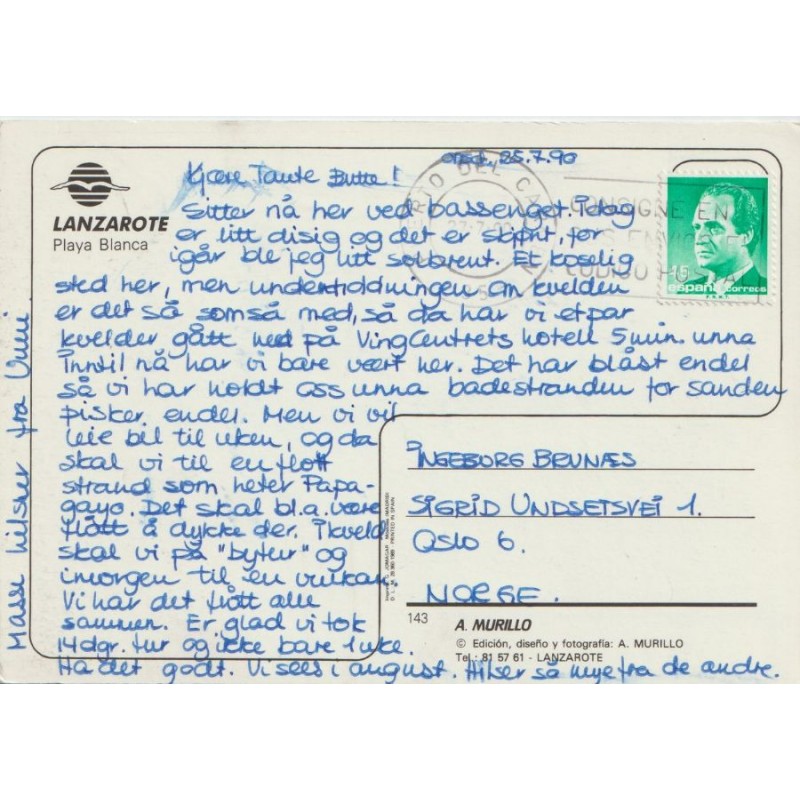 onsd. 25.7.90
Kjære Tante Butte!
LANZAROTE
Playa Blanca
Sitter nå her ved bassenget. Idag
er litt disig og det er skjønt, for
igår ble jeg litt solbrent. Et koselig
sted her, men underholdningen om kvelden
er det så somså med, så da har vi et par
kvelder gått ned på VingCentrets hotell 5 min. unna
Inntil nå har vi bare vært her. Det har blåst endel
så vi har holdt oss unna badestranden for sanden
pisker endel. Men vi vil
leie bil til uken, og da
skal vi til en flott
strand som heter Papa-
gayo. Det skal bl.a. være
flott å dykke der. Ikveld
skal vi på "bytur" og
imorgen til en vulkan.
Vi har det flott alle
sammen. Er glad vi tok
14 dgr. tur og ikke bare 1 uke.
Ha det godt. Vi sees i august. Hilser så mye fra de andre.
Masse hilsner fra Unni
PUERTO DEL C
27.7.90
CONSIGNE EN
SUS ENVIOS EL
CODIGO POSTAL
15
españa correos
F.N.M.T.
INGEBORG BRUNÆS
SIGRID UNDSETSVEI 1.
OSLO 6.
NORGE.
PRINTED IN SPAIN
143
A. MURILLO
© Edición, diseño y fotografía: A. MURILLO
Tel.: 81 57 61 - LANZAROTE